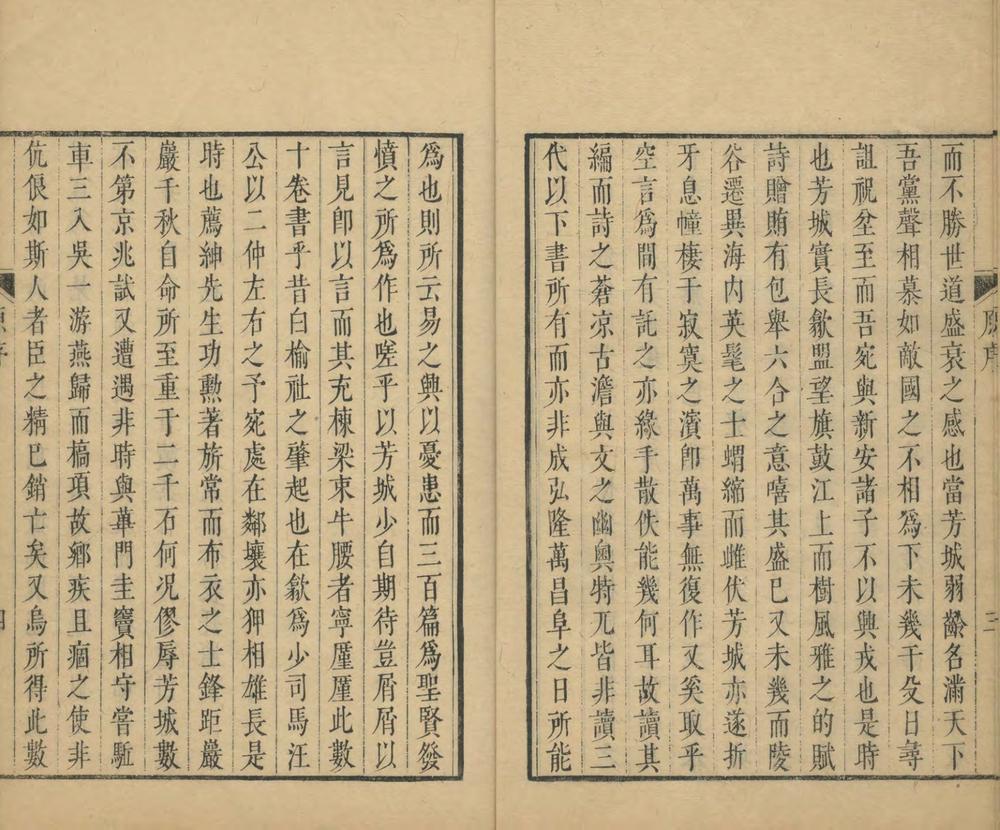 而不勝世道盛衰之感也當芳城弱齡名滿天下
吾黨聲相慕如敵國之不相為下未幾干殳日尋
詛祝坌至而吾宛與新安諸子不以興戎也是時
也芳城實長歙盟望旗鼓江上而樹風雅之的賦
詩贈賄有包舉六合之意嘻其盛已又未幾而陵
谷遷異海內英髦之士蝟縮而雌伏芳城亦遂折
牙息幢棲于寂寞之濱卽萬事無復作又奚取乎
空言為間有託之亦緣手散佚能幾何耳故讀其
編而詩之蒼凉古澹與文之幽奧特兀皆非讀三
代以下書所有而亦非成弘隆萬昌阜之日所能
為也則所云易之興以憂患而三百篇為聖賢發
憤之所為作也嗟乎以芳城少自期待豈屑屑以
言見卽以言而其充棟梁束牛腰者寧厪厪此數
十卷書乎昔白榆社之肇起也在歙為少司馬汪
公以二仲左右之予宛處在鄰壤亦狎相雄長是
時也薦紳先生功勳著旂常而布衣之士鋒距巖
巖千秋自命所至重于二千石何况僇辱芳城數
不第京兆試又遭遇非時與蓽門圭竇相守當駈
車三入吳一游燕歸而槁項故鄉疾且痼之使非
伉俍如斯人者臣之精已銷亡矣又烏所得此數
原序
三